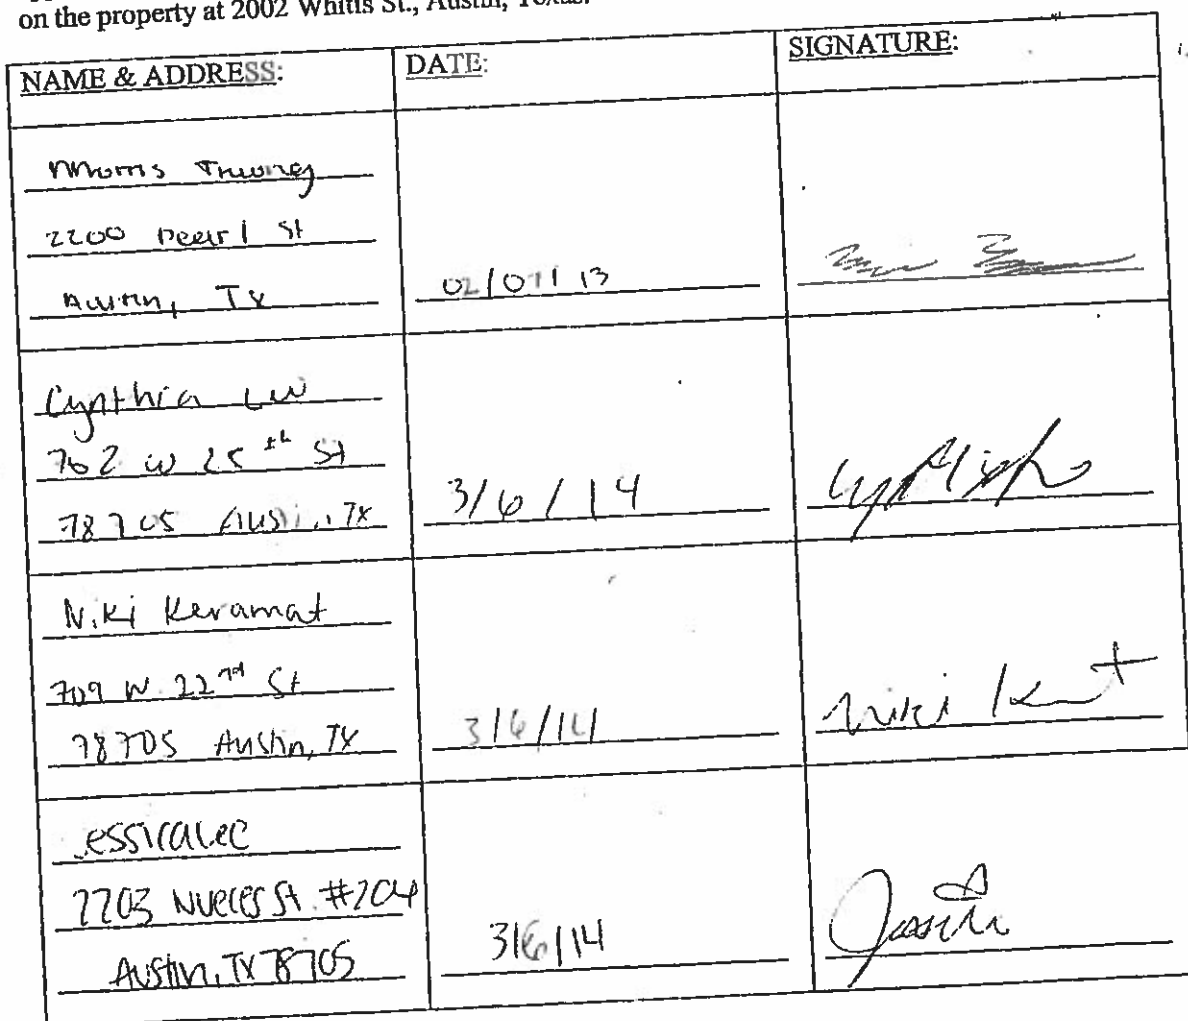 on the property at 2002 Whitis St., Austin, Texas.
NAME & ADDRESS: DATE: SIGNATURE:
Morris Truong
2200 Pearl St
Austin, TX 02/07/13
Cynthia
702 W 25th St
78705 Austin, TX 3/6/14
Niki Keramat
709 W 22nd St
78705 Austin, TX 3/6/14 Niki
essica Lee
2203 Nueces St. #204
Austin, TX 78705 3/6/14